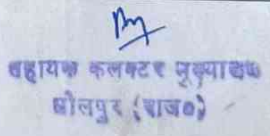 सहायक कलक्टर मुख्यालय
धोलपुर (राज०)